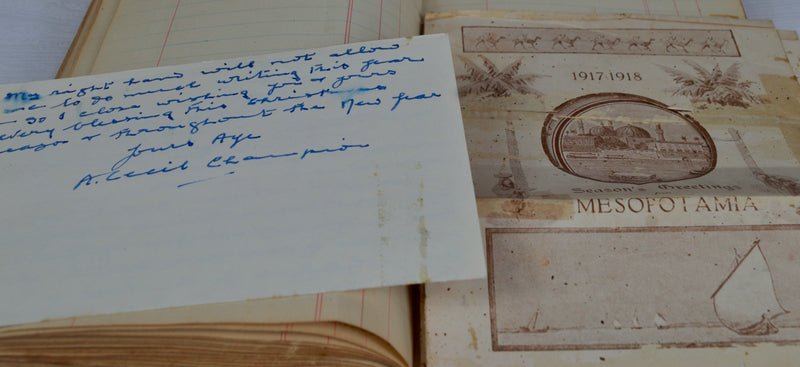 My right hand will not allow
me to do much writing this year
so I close wishing you & yours
every blessing this Christmas
season & throughout the New Year
Yours Aye
A. Cecil Champion
1917-1918
Season's Greetings
MESOPOTAMIA